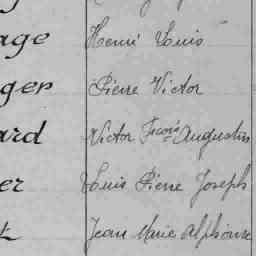 age Henri Louis
ger Pierre Victor
ard Victor Fçois Augustin
er Louis Pierre Joseph
t Jean Marie Alphonse